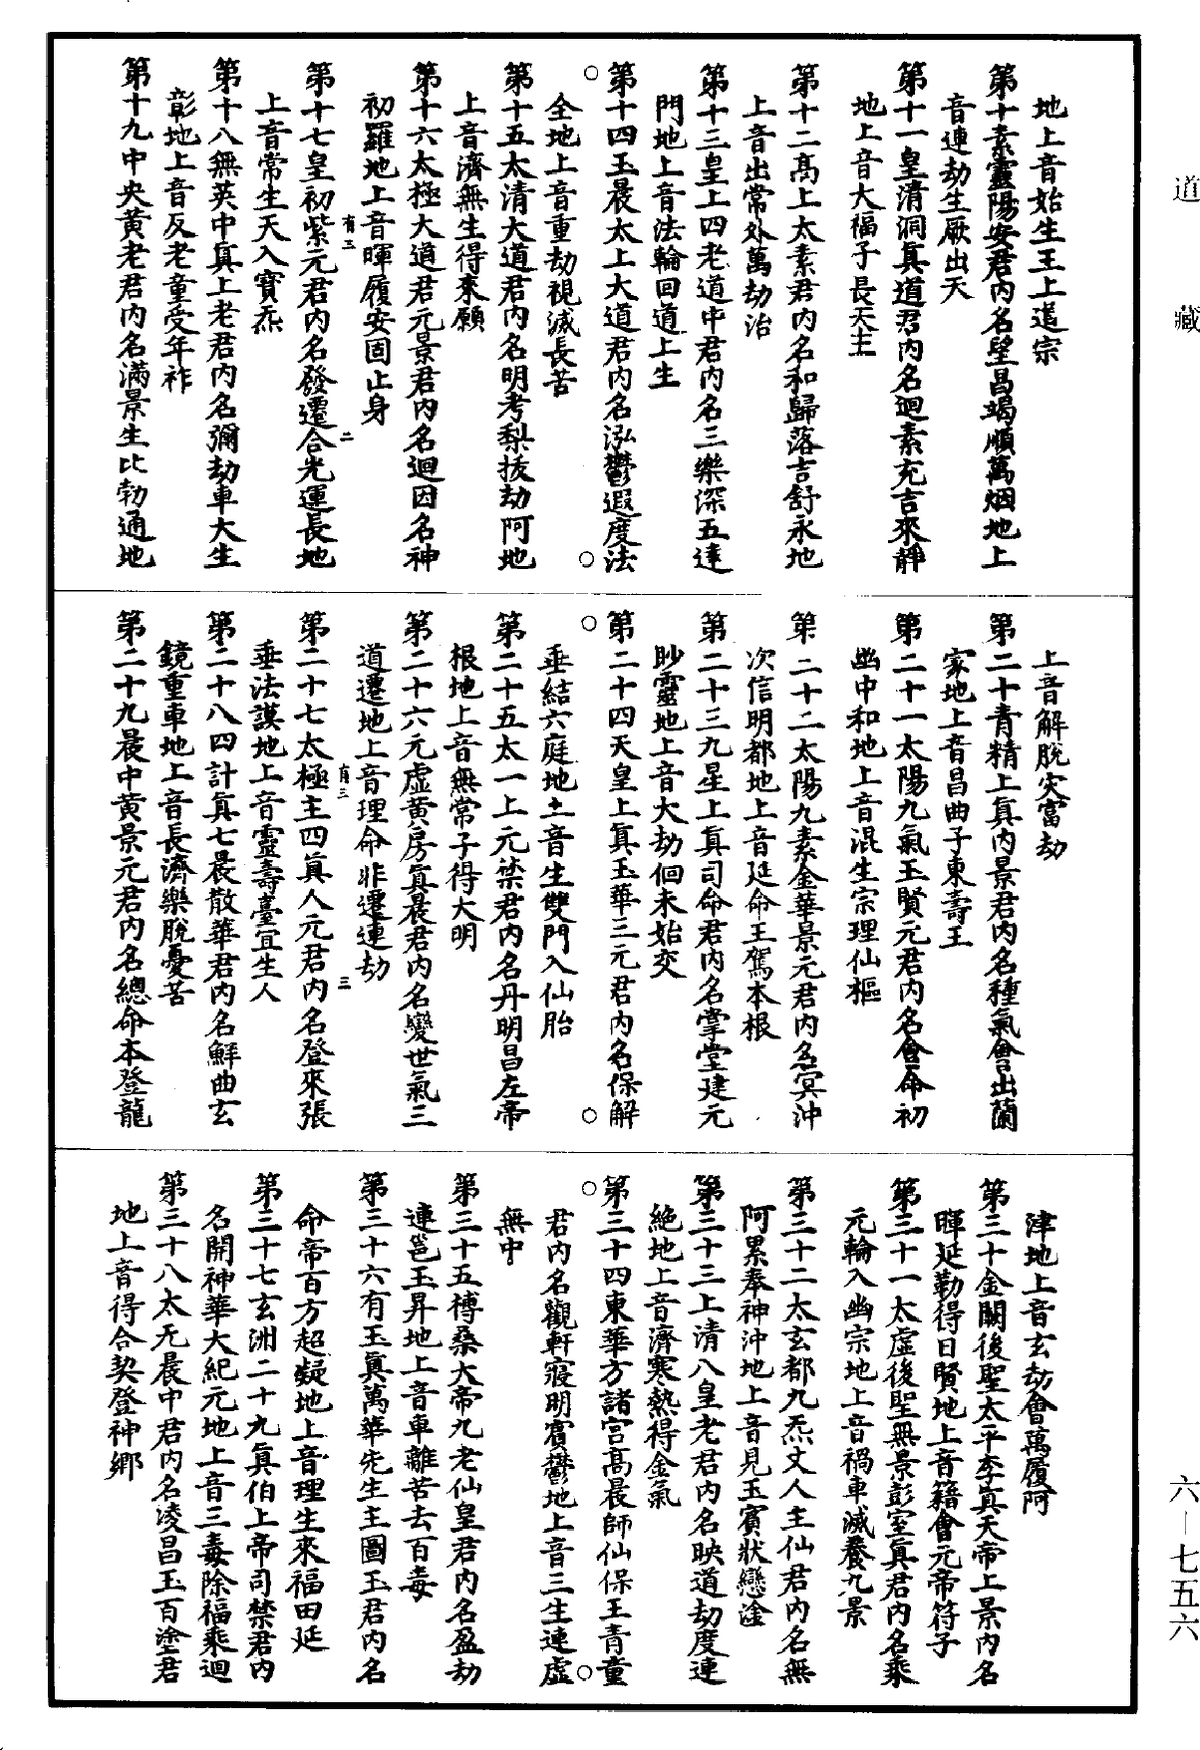 道藏
地上音始生王上道宗
第十素靈陽安君內名堅昌竭順萬烟地上
音連劫生厥出天
第十一皇清洞真道君內名迴素充吉來靜
地上音大福子長天主
第十二高上太素君內名和歸落吉舒永地
上音出常外萬劫治
第十三皇上四老道中君內名三樂深五達
門地上音法輪回道上生
第十四玉晨太上大道君內名泓鬱遐度法
全地上音重劫視滅長苦
第十五太清大道君內名明考梨拔劫阿地
上音濟無生得來願
第十六太極大道君元景君內名迴因名神
初羅地上音暉履安固止身
第十七皇初紫元君內名發遷合光運長地
上音常生天入寶炁
第十八無英中真上老君內名彌劫車大生
彰地上音反老童受年祚
第十九中央黃老君內名滿景生比勃通地
有三 二
上音解脫災富劫
第二十青精上真內景君內名種氣會出蘭
家地上音昌曲子東壽王
第二十一太陽九氣玉賢元君內名會命初
幽中和地上音混生宗理仙樞
第二十二太陽九素金華景元君內名冥沖
次信明都地上音延命王駕本根
第二十三九星上真司命君內名掌堂建元
眇靈地上音大劫佪未始交
第二十四天皇上真玉華三元君內名保解
垂結六庭地土音生雙門入仙胎
第二十五太一上元禁君內名丹明昌左帝
根地上音無常子得大明
第二十六元虛黃房真晨君內名變世氣三
道遷地上音理命非遷連劫
第二十七太極主四真人元君內名登來張
垂法謨地上音靈壽臺宜生人
第二十八四計真七晨散華君內名鮮曲玄
鏡重車地上音長濟樂脫憂苦
第二十九晨中黃景元君內名總命本登龍
有三 三
津地上音玄劫會萬履阿
第三十金闕後聖太平李真天帝上景內名
暉延勤得日賢地上音籍會元帝符子
第三十一太虛後聖無景彭室真君內名乘
元輪入幽宗地上音禍車滅養九景
第三十二太玄都九炁丈人主仙君內名無
阿累奉神沖地上音見玉賓狀戀淦
第三十三上清八皇老君內名映道劫度連
絕地上音濟寒熱得金氣
第三十四東華方諸宮高晨師仙保王青童
君內名觀軒寢明賓鬱地上音三生連虛
無中
第三十五榑桑大帝九老仙皇君內名盈劫
連邕玉昇地上音車離苦去百毒
第三十六有玉真萬華先生主圖玉君內名
命帝百方超凝地上音理生來福田延
第三十七玄洲二十九真伯上帝司禁君內
名開神華大紀元地上音三毒除福乘迴
第三十八太元晨中君內名凌昌玉百塗君
地上音得合契登神鄉
六-七五六